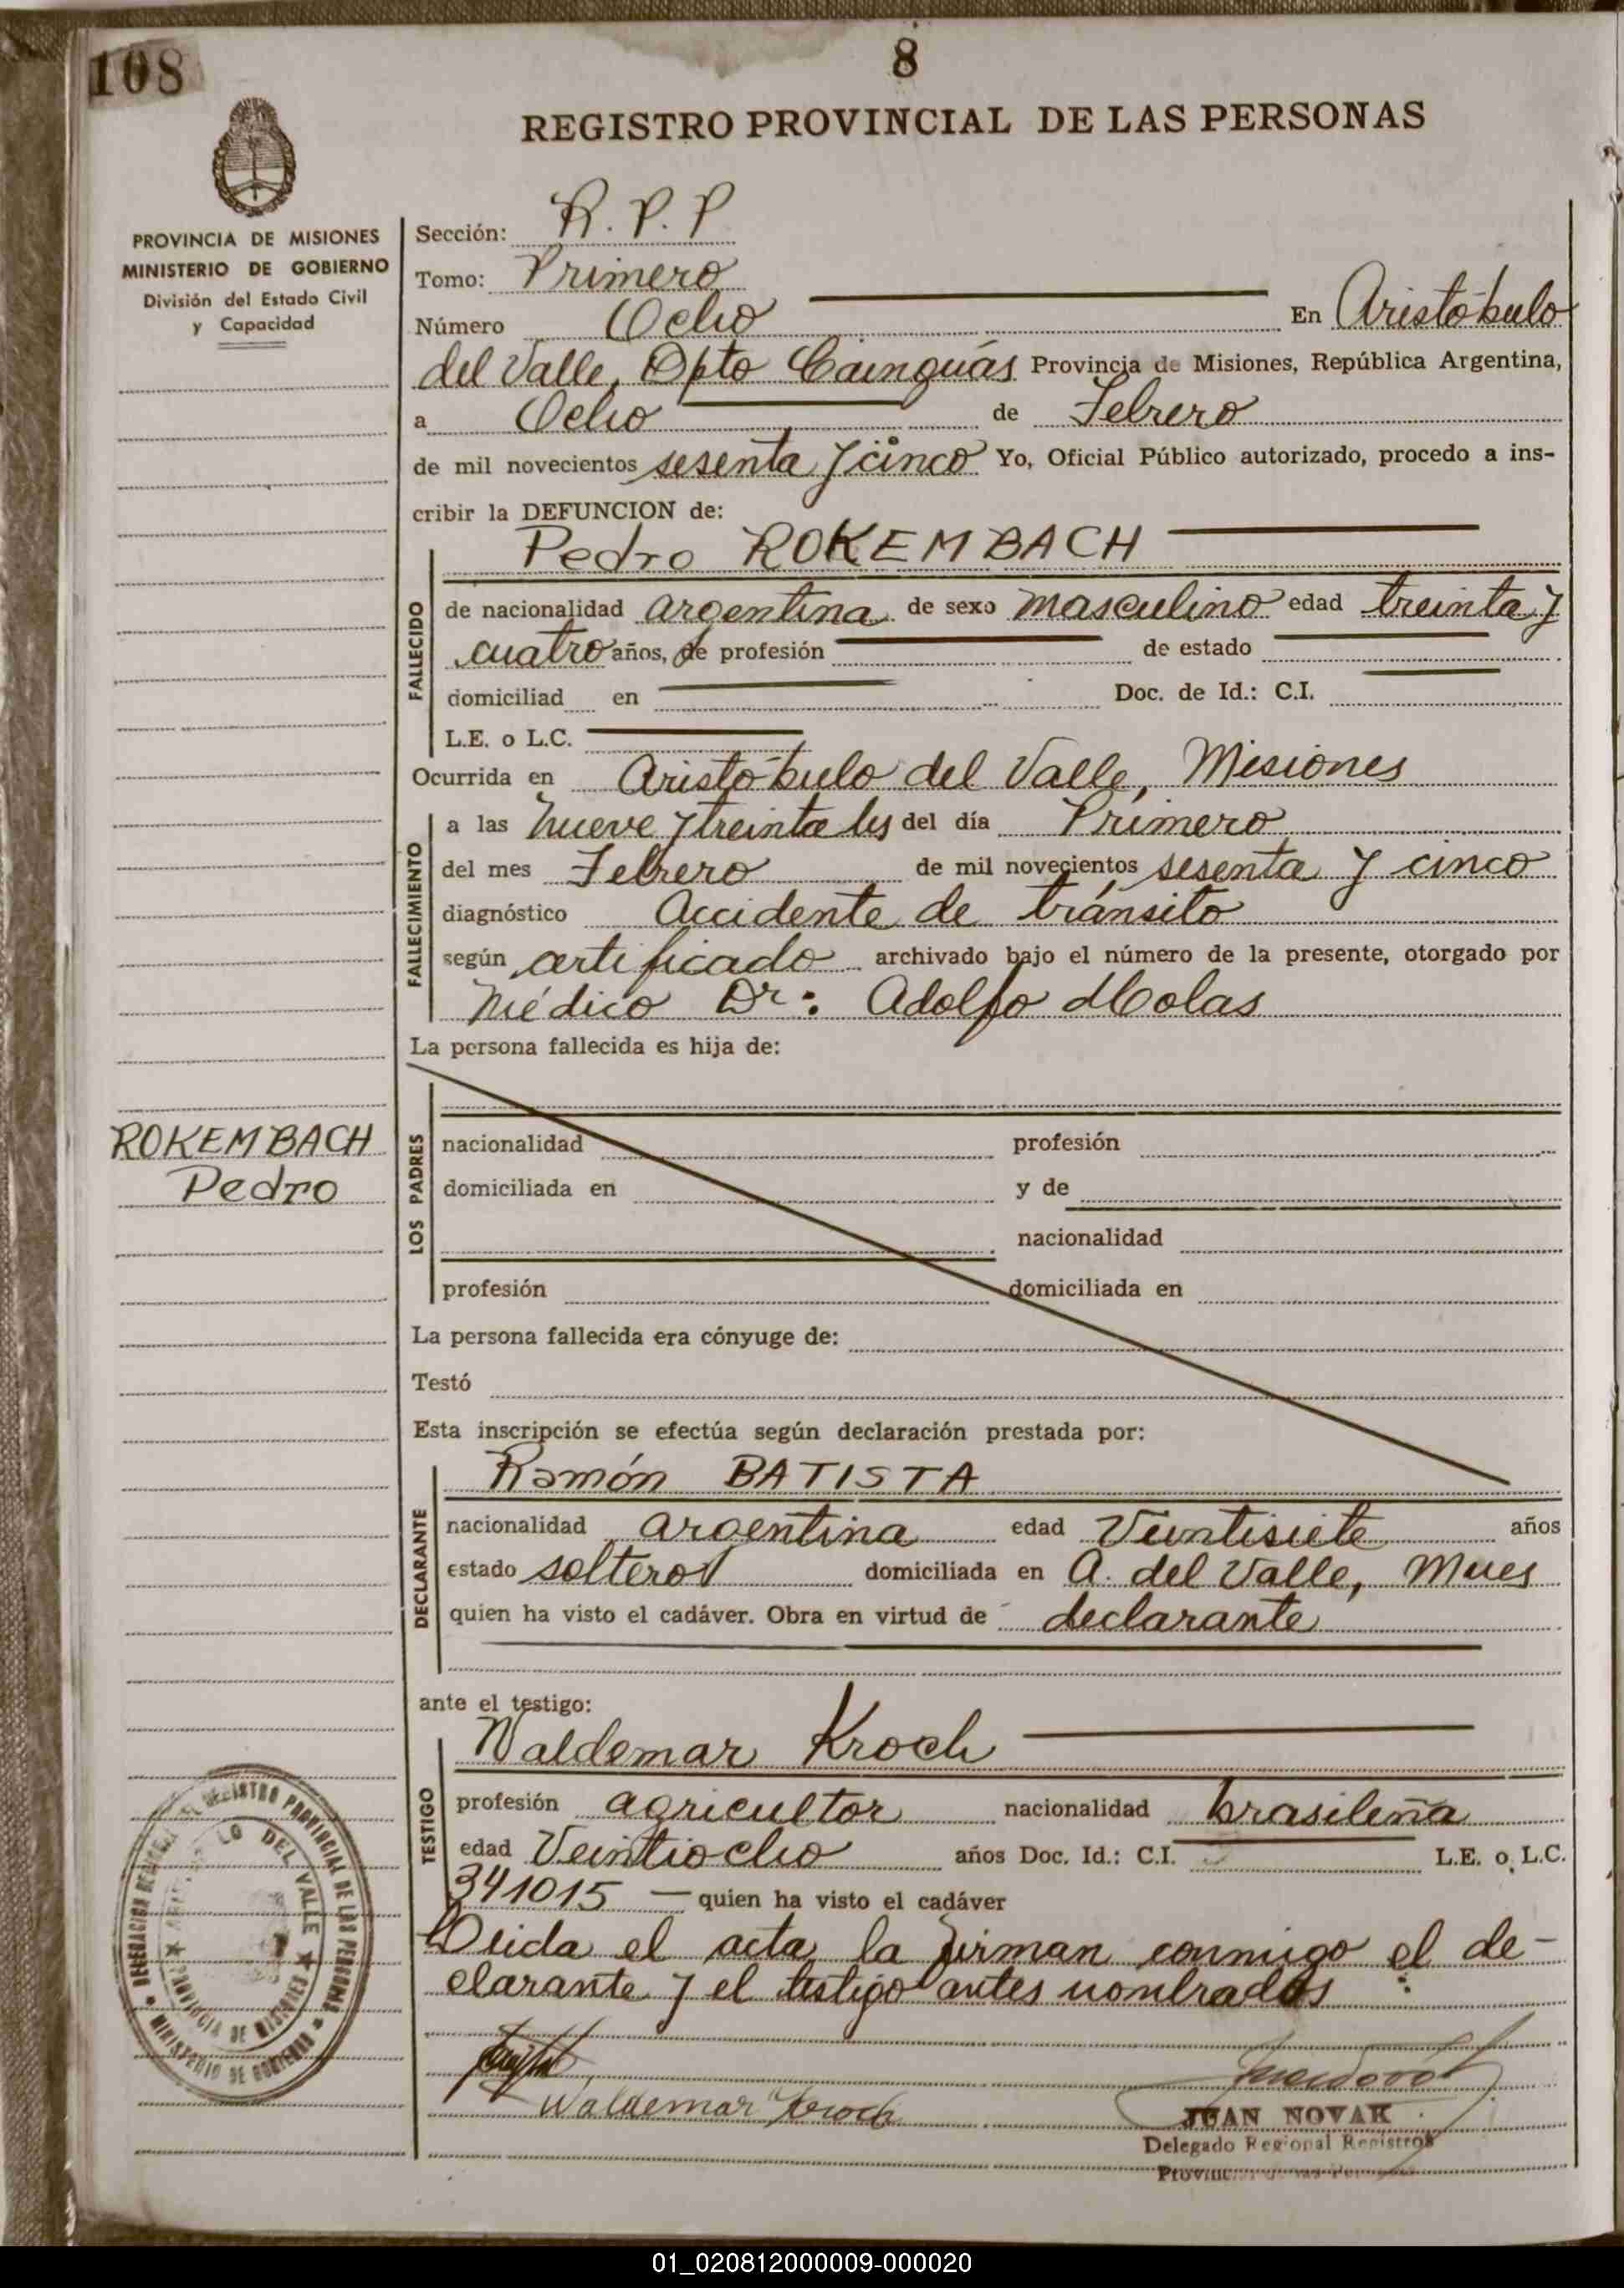 108
8
REGISTRO PROVINCIAL DE LAS PERSONAS
PROVINCIA DE MISIONES
MINISTERIO DE GOBIERNO
División del Estado Civil
y Capacidad
Sección: R. P. P
Tomo: Primero
Número Ocho En Aristóbulo
del Valle, Dpto Cainguás Provincia de Misiones, República Argentina,
a Ocho de Febrero
de mil novecientos sesenta y cinco Yo, Oficial Público autorizado, procedo a ins-
cribir la DEFUNCION de:
Pedro ROKEMBACH
FALLECIDO
de nacionalidad argentina de sexo masculino edad treinta y
cuatro años, de profesión de estado
domiciliad en Doc. de Id.: C.I.
L.E. o L.C.
Ocurrida en Aristóbulo del Valle, Misiones
FALLECIMIENTO
a las nueve y treinta hs del día Primero
del mes Febrero de mil novecientos sesenta y cinco
diagnóstico Accidente de tránsito
según certificado archivado bajo el número de la presente, otorgado por
Médico Dr: Adolfo Molas
La persona fallecida es hija de:
ROKEMBACH
Pedro
LOS PADRES
nacionalidad profesión
domiciliada en y de
nacionalidad
profesión domiciliada en
La persona fallecida era cónyuge de:
Testó
Esta inscripción se efectúa según declaración prestada por:
Ramón BATISTA
DECLARANTE
nacionalidad argentina edad Veintisiete años
estado soltero domiciliada en A. del Valle, Mnes
quien ha visto el cadáver. Obra en virtud de declarante
ante el testigo:
Waldemar Kroch
TESTIGO
profesión agricultor nacionalidad brasileña
edad Veintiocho años Doc. Id.: C.I. L.E. o L.C.
341015 — quien ha visto el cadáver
Leida el acta, la firman conmigo el de-
clarante y el testigo antes nombrados
Waldemar Kroch
JUAN NOVAK
Delegado Regional Registros
REGISTRO PROVINCIAL DE LAS PERSONAS
DEL VALLE
PROVINCIA DE MISIONES
MINISTERIO DE GOBIERNO
01_020812000009-000020